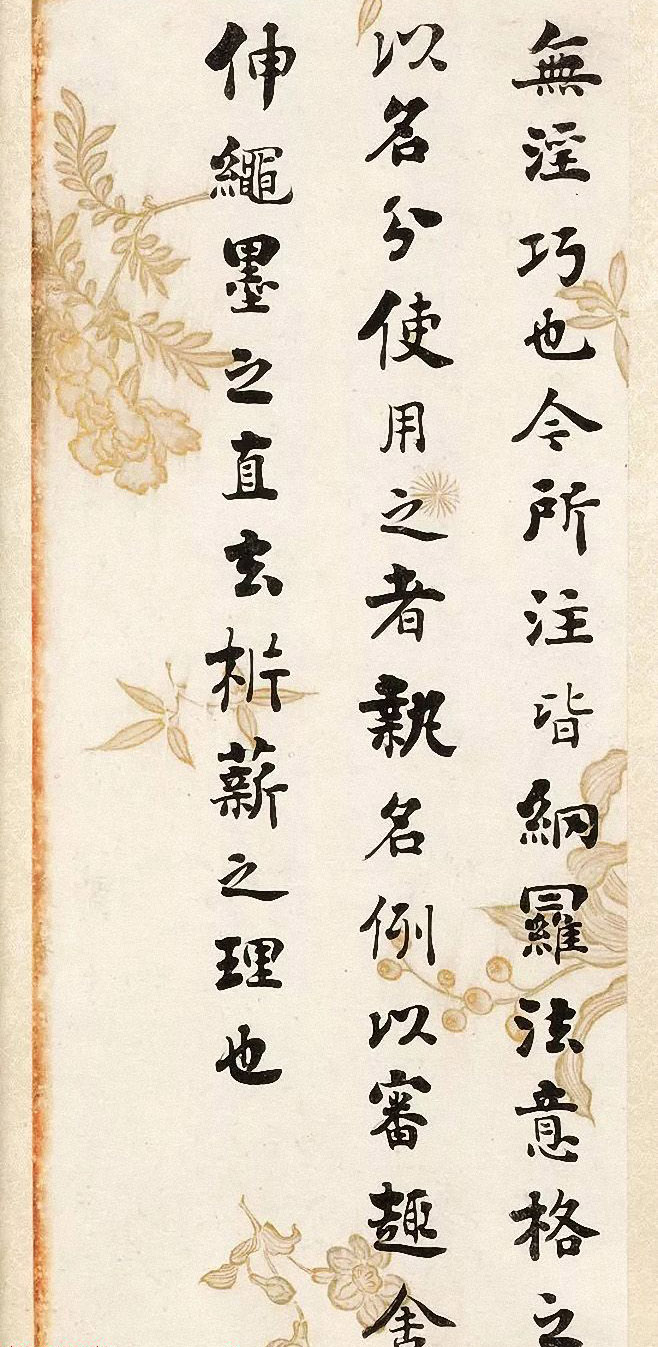 無淫巧也令所注皆網羅法意格之
以名分使用之者執名例以審趣舍
伸繩墨之直去析薪之理也